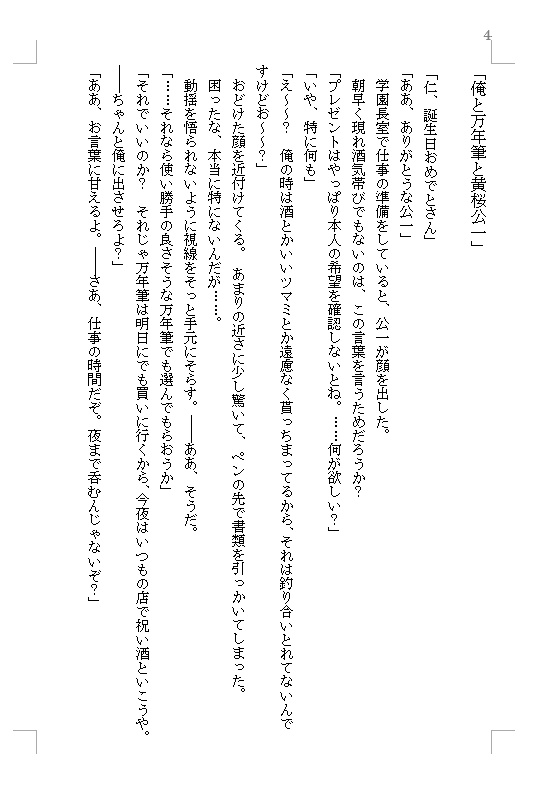 4
「俺と万年筆と黄桜公一」
「仁、誕生日おめでとさん」
「ああ、ありがとうな公一」
　学園長室で仕事の準備をしていると、公一が顔を出した。
　朝早く現れ酒気帯びでもないのは、この言葉を言うためだろうか？
「プレゼントはやっぱり本人の希望を確認しないとね。……何が欲しい？」
「いや、特に何も」
「え～～？　俺の時は酒とかいいツマミとか遠慮なく貰っちまってるから、それは釣り合いとれてないんで
すけどお～～？」
　おどけた顔を近付けてくる。　あまりの近さに少し驚いて、ペンの先で書類を引っかいてしまった。
　困ったな、本当に特にないんだが……。
　動揺を悟られないように視線をそっと手元にそらす。――ああ、そうだ。
「……それなら使い勝手の良さそうな万年筆でも選んでもらおうか」
「それでいいのか？　それじゃ万年筆は明日にでも買いに行くから、今夜はいつもの店で祝い酒といこうや。
――ちゃんと俺に出させろよ？」
「ああ、お言葉に甘えるよ。――さあ、仕事の時間だぞ。夜まで呑むんじゃないぞ？」